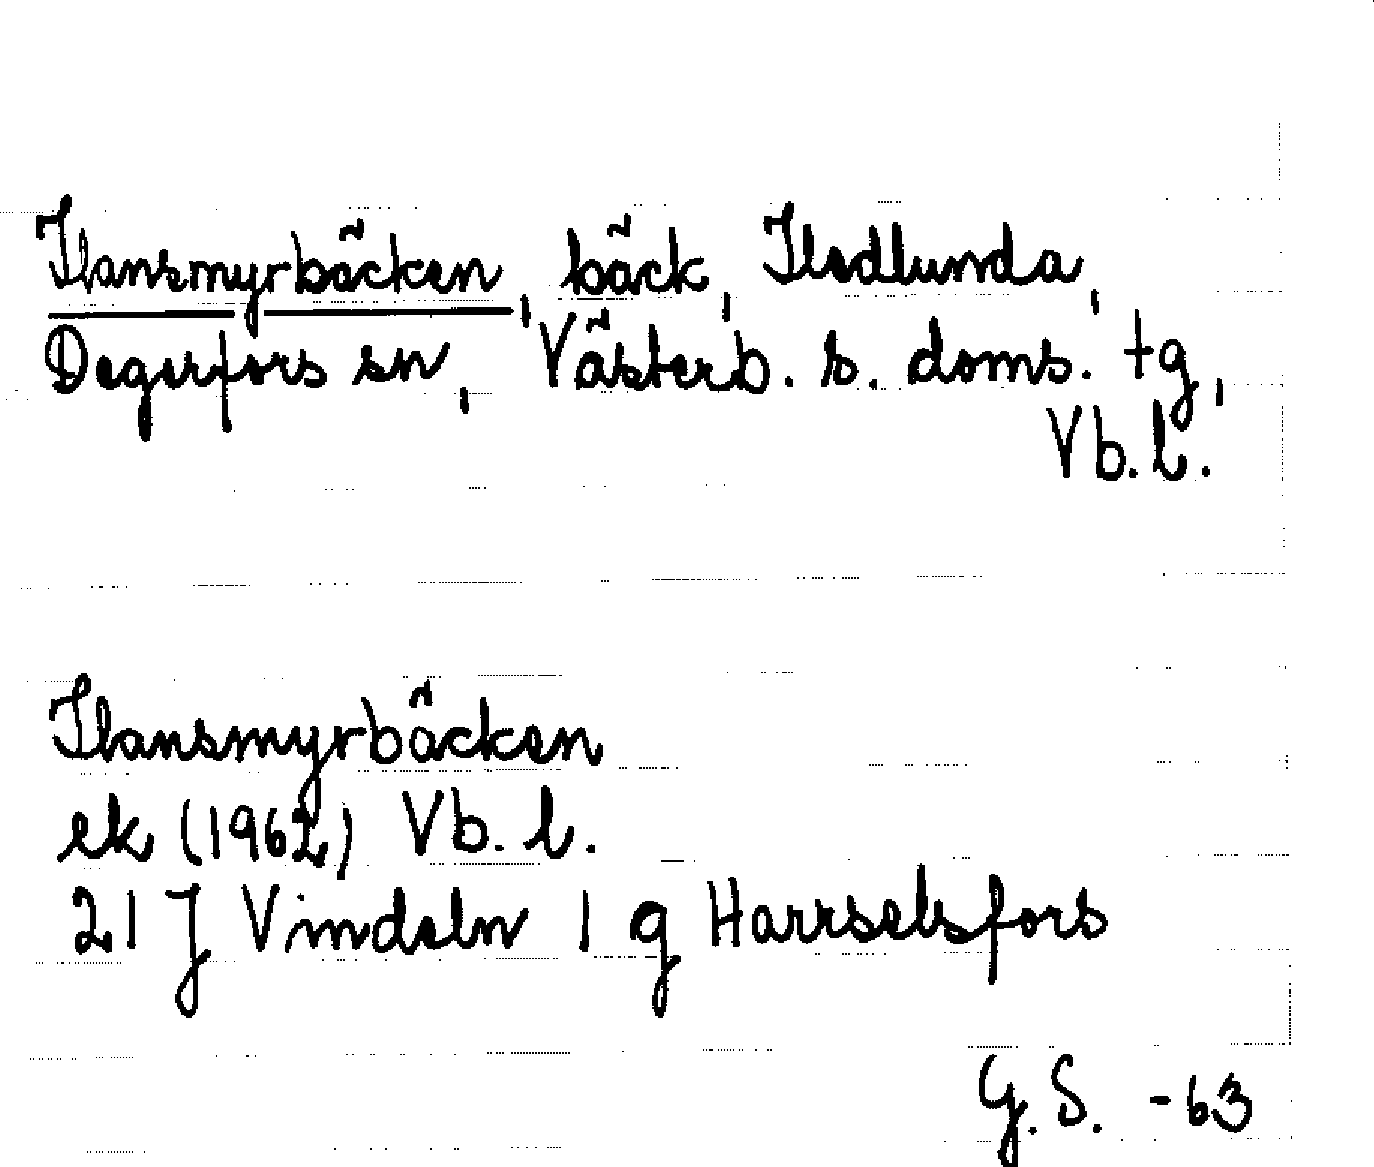 Hansmyrbäcken, bäck, Hedlunda,
Degerfors sn, Västerb. s. doms. tg,
Vb. l.
Hansmyrbäcken
ek (1962) Vb. l.
21 J Vindeln 1 g Harrselsfors
G. S. -63